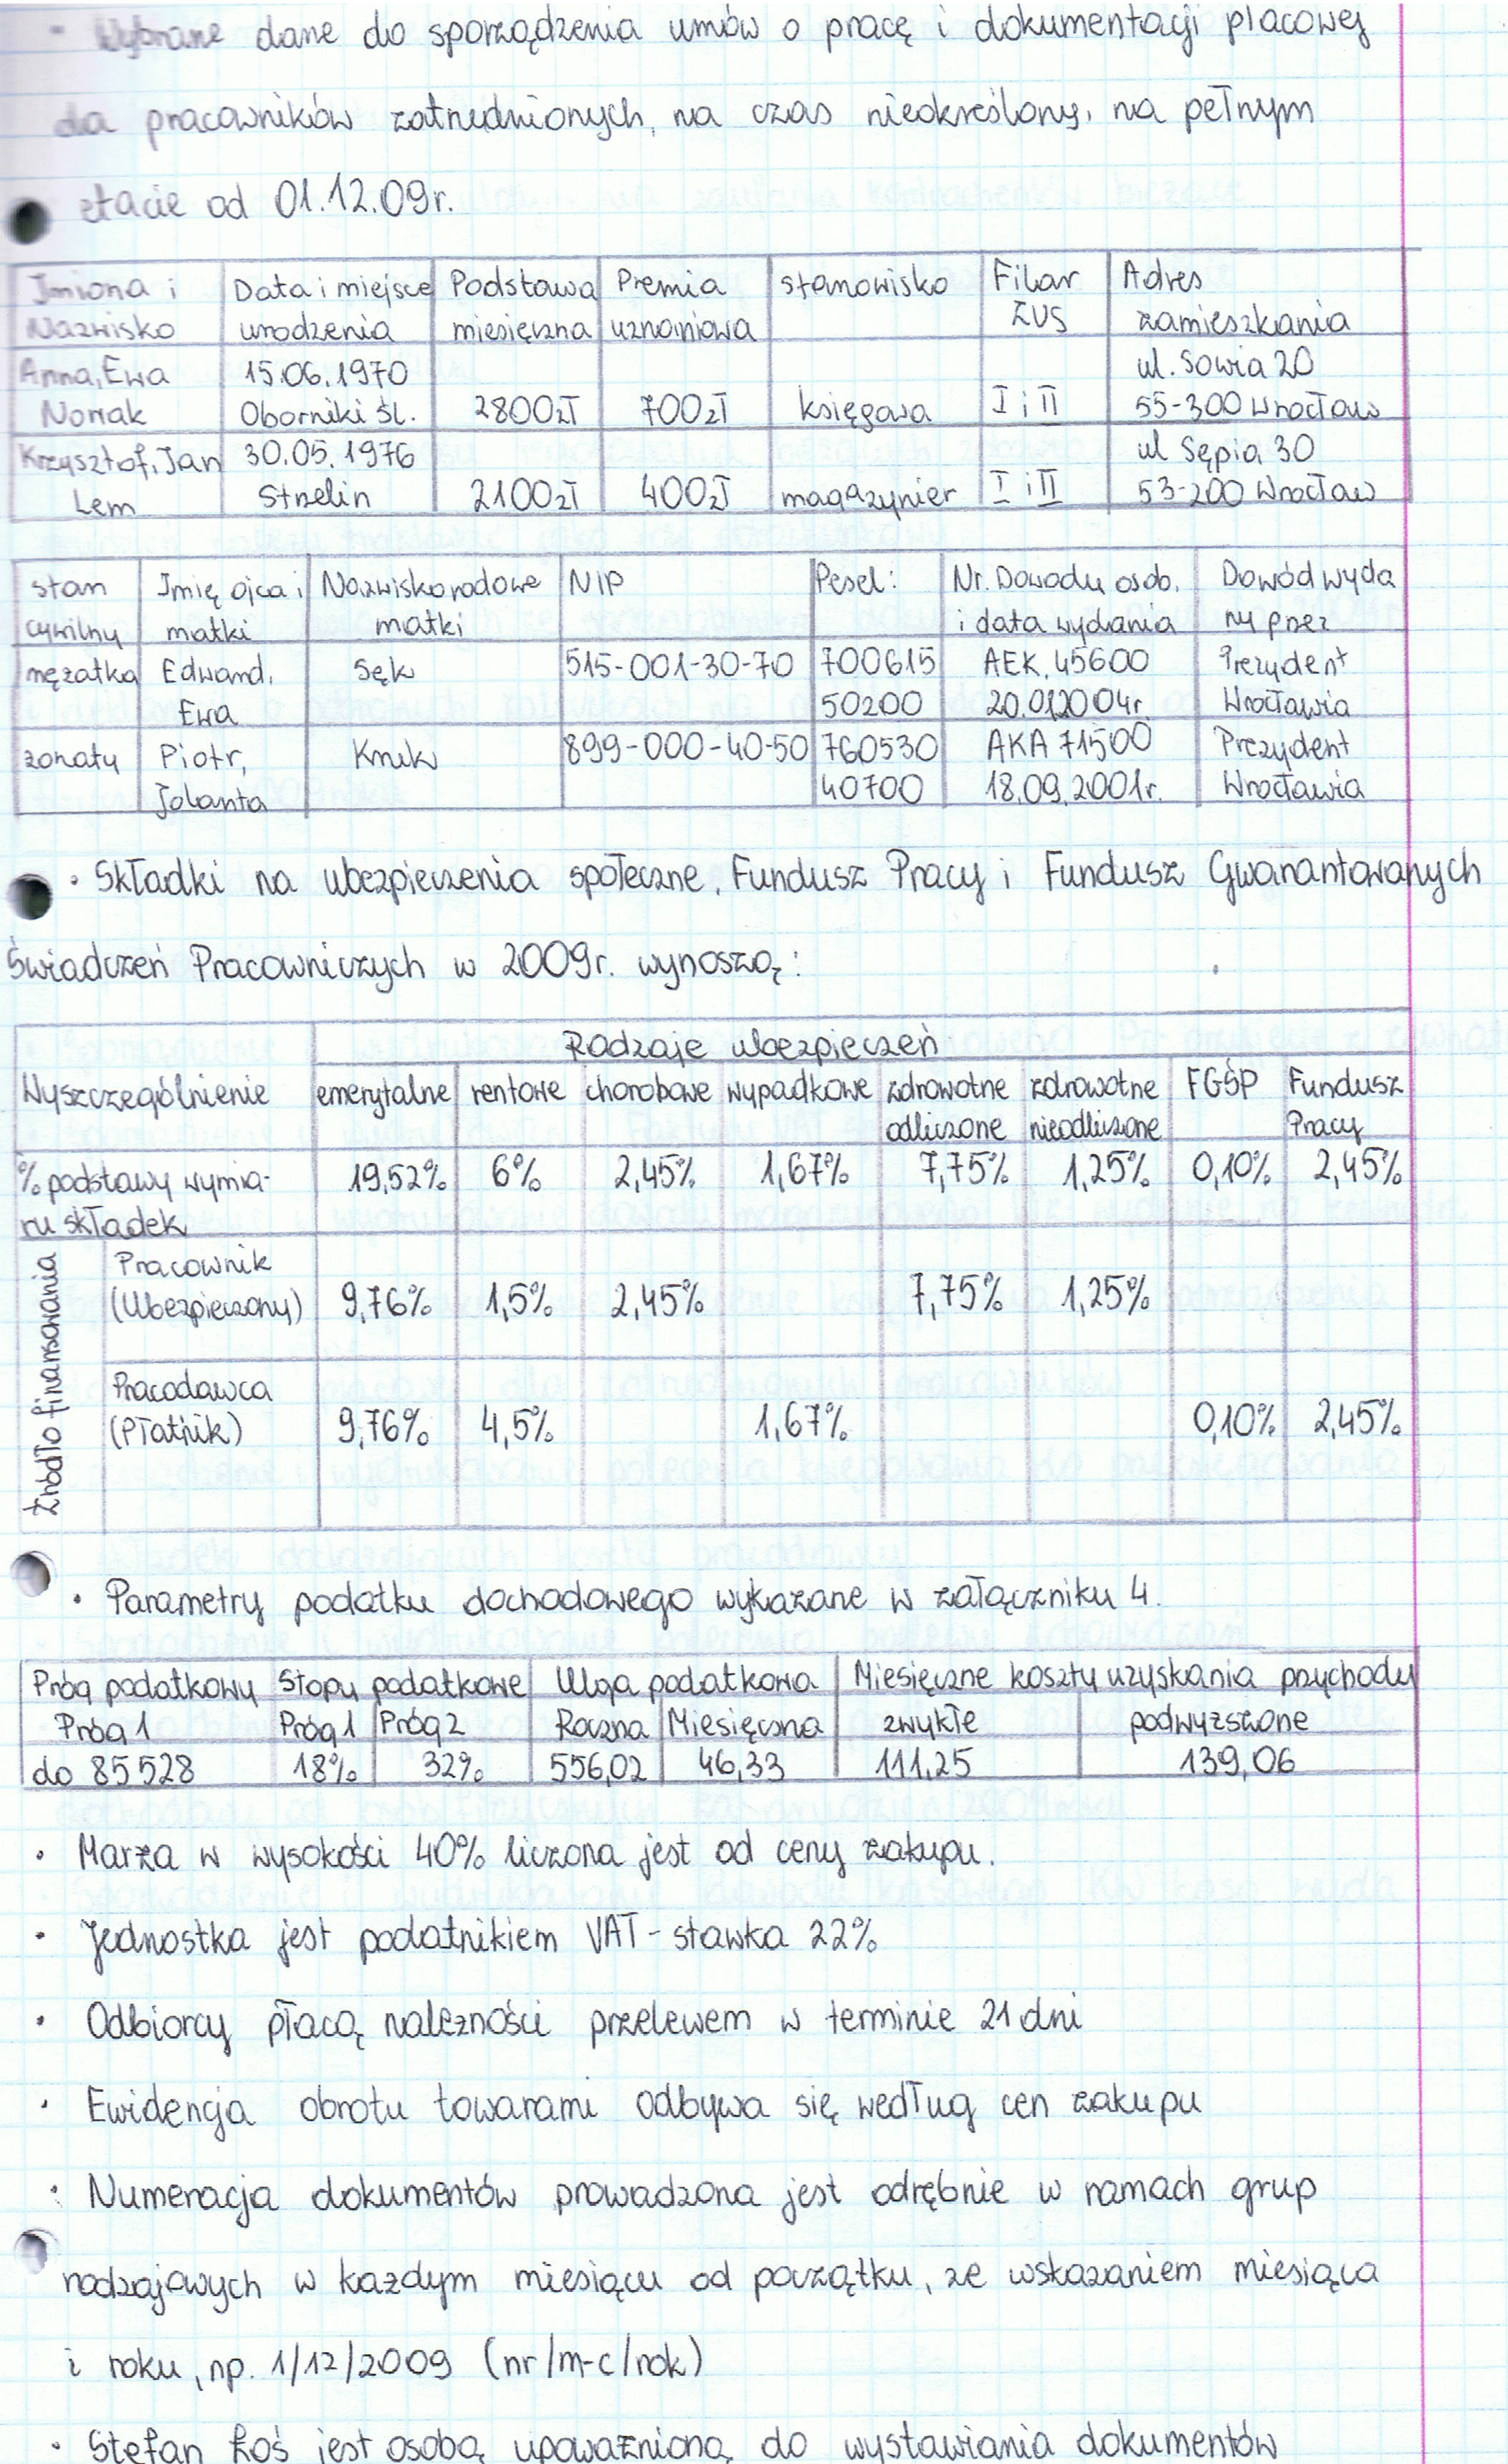 • Wybrane dane do sporządzenia umów o pracę i dokumentacji płacowej
dla pracowników zatrudnionych, na czas nieokreślony, na pełnym
etacie od 01.12.09r.
Imiona i | Data i miejsce | Podstawa | Premia | stanowisko | Filar | Adres
Nazwisko | urodzenia | miesięczna | uznaniowa | ZUS | zamieszkania
Anna, Ewa | 15.06.1970 | ul. Sowia 20
Nowak | Oborniki Śl. | 2800zł | 700zł | księgowa | I i II | 55-300 Wrocław
Krzysztof, Jan | 30.05.1976 | ul Sępia 30
Lem | Strzelin | 2100zł | 400zł | magazynier | I i II | 53-200 Wrocław
stan | Imię ojca i | Nazwisko rodowe | NIP | Pesel: | Nr. Dowodu osob. | Dowód wyda
cywilny | matki | matki | i data wydania | ny przez
mężatka | Edward, | Sęk | 515-001-30-70 | 700615 | AEK. 45600 | Prezydent
Ewa | 50200 | 20.01.2004r. | Wrocławia
żonaty | Piotr, | Kruk | 899-000-40-50 | 760530 | AKA 71500 | Prezydent
Jolanta | 40700 | 18.09.2001r. | Wrocławia
• Składki na ubezpieczenia społeczne, Fundusz Pracy i Fundusz Gwarantowanych
Świadczeń Pracowniczych w 2009r. wynoszą:
Rodzaje ubezpieczeń
Wyszczególnienie | emerytalne | rentowe | chorobowe | wypadkowe | zdrowotne | zdrowotne | FGŚP | Fundusz
odliczone | nieodliczone | Pracy
% podstawy wymia- | 19,52% | 6% | 2,45% | 1,67% | 7,75% | 1,25% | 0,10% | 2,45%
ru składek
Źródło finansowania
Pracownik
(Ubezpieczony) | 9,76% | 1,5% | 2,45% | 7,75% | 1,25%
Pracodawca
(Płatnik) | 9,76% | 4,5% | 1,67% | 0,10% | 2,45%
• Parametry podatku dochodowego wykazane w załączniku 4.
Próg podatkowy | Stopy podatkowe | Ulga podatkowa | Miesięczne koszty uzyskania przychodu
Próg 1 | Próg 1 | Próg 2 | Roczna | Miesięczna | zwykłe | podwyższone
do 85528 | 18% | 32% | 556,02 | 46,33 | 111,25 | 139,06
• Marża w wysokości 40% liczona jest od ceny zakupu.
• Jednostka jest podatnikiem VAT - stawka 22%
• Odbiorcy płacą należności przelewem w terminie 21 dni
• Ewidencja obrotu towarami odbywa się według cen zakupu
• Numeracja dokumentów prowadzona jest odrębnie w ramach grup
rodzajowych w każdym miesiącu od początku, ze wskazaniem miesiąca
i roku, np. 1/12/2009 (nr/m-c/rok)
• Stefan Łoś jest osobą upoważnioną do wystawiania dokumentów